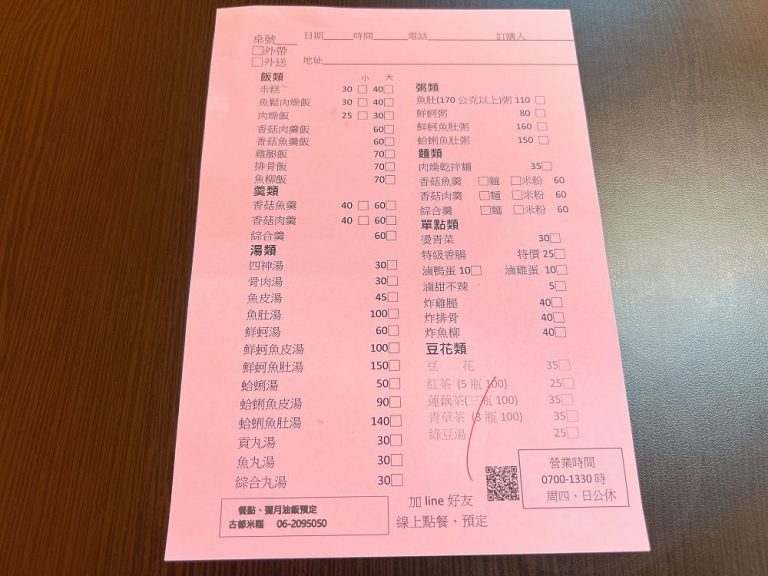 桌號 日期 時間 電話 訂購人
□外帶
□外送 地址
飯類 小 大
米糕 30 □ 40□
魚鬆肉燥飯 30 □ 40□
肉燥飯 25 □ 30□
香菇肉羹飯 60□
香菇魚羹飯 60□
雞腿飯 70□
排骨飯 70□
魚柳飯 70□
羹類
香菇魚羹 40 □ 60□
香菇肉羹 40 □ 60□
綜合羹 60□
湯類
四神湯 30□
骨肉湯 30□
魚皮湯 45□
魚肚湯 100□
鮮蚵湯 60□
鮮蚵魚皮湯 100□
鮮蚵魚肚湯 150□
蛤蜊湯 50□
蛤蜊魚皮湯 90□
蛤蜊魚肚湯 140□
貢丸湯 30□
魚丸湯 30□
綜合丸湯 30□
餐點、彌月油飯預定
古都米糕 06-2095050
粥類
魚肚(170 公克以上)粥 110 □
鮮蚵粥 80 □
鮮蚵魚肚粥 160 □
蛤蜊魚肚粥 150 □
麵類
肉燥乾拌麵 35□
香菇魚羹 □麵 □米粉 60
香菇肉羹 □麵 □米粉 60
綜合羹 □麵 □米粉 60
單點類
燙青菜 30□
特級香腸 特價 25□
滷鴨蛋 10□ 滷雞蛋 10□
滷甜不辣 5□
炸雞腿 40□
炸排骨 40□
炸魚柳 40□
豆花類
豆 花 35□
紅茶 (5 瓶 100) 25□
蓮藕茶(三瓶 100) 35□
青草茶 (3 瓶 100) 35□
綠豆湯 25□
加 line 好友
線上點餐、預定
營業時間
0700-1330 時
周四、日公休